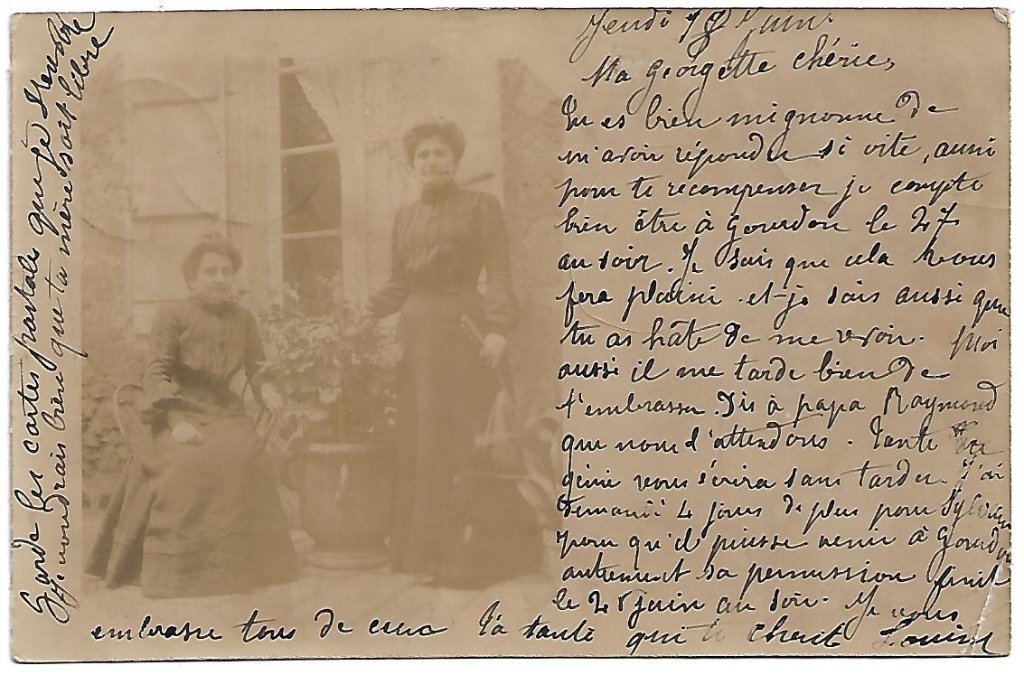 Jeudi Juin.
Ma Georgette chérie,
Tu es bien mignonne de
m'avoir répondu si vite, aussi
pour te recompenser je compte
bien être à Gourdon le 27
au soir. Je sais que cela vous
fera plaisir et je sais aussi que
tu as hâte de me revoir. Moi
aussi il me tarde bien de
t'embrasser. Dis à papa Raymond
que nous l'attendons. Tante
génie vous écrira sans tarder. J'ai
demandé 4 jours de plus pour Sylvain
pour qu'il puisse venir à Gourdon
autrement sa permission finit
le 28 juin au soir. Je vous
embrasse tous de cœur Ta tante qui te cherit
Garde les cartes postales que je
Je voudrais bien que ta mère soit libre